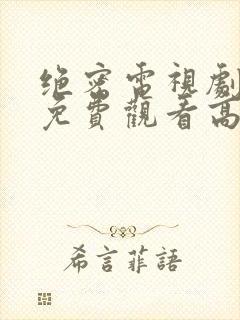 绝密電視劇
免費觀看高
希言菲語